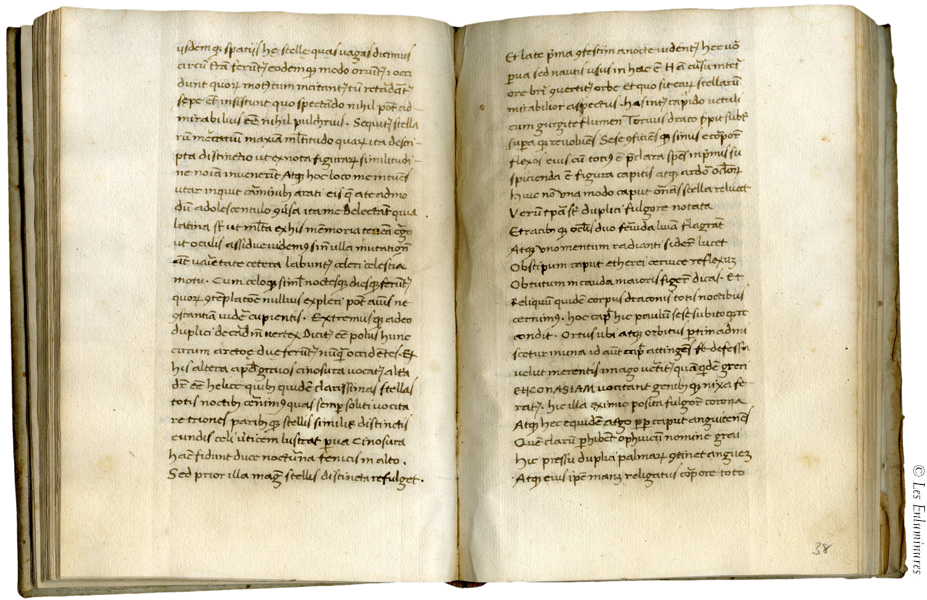 iisdemq; spatiis he stelle quas vagas dicimus
circũ trã ferunt̃ eodemq; modo oriunt̃ ⁊ occi
dunt quoꝝ motꝰ tum incitant̃ tũ retardãt̃
sepe etiã insistunt quo spectãdo nihil pot̃ ad-
mirabilius eẽ nihil pulchrius. Sequit̃ stella
rum maxima m̃ltitudo quaꝝ ita descri-
pta distinctio ut ex nota figuraꝝ similitudi-
ne noĩa invenerit Atq; hoc loco me intuẽs
utar inquit carminibꝰ arati
dũ adolescentulo ita me delectãt quia
latina st̃ ut m̃lta ex his memoria teneã ergo
ut oculis assidue videmꝰ sine ulla mutatiõe
aut varietate cetera labunt̃ celeri celestia
motu. Cum celoq; siml noctesq; diesq; ferunt̃
quoꝝ ꝯtẽplatõe nullius expleri pot̃ aĩus ne
ꝯstantiã videre cupientis. Extremusq; adeo
duplici de cardine vertex Dicit̃ eẽ polus hunc
circum arctoe due ferunt̃ nũq̃ occidẽtes. Et
his altera apud graios cinosura vocat̃ alta
dr̃ eẽ helice quibꝰ quidẽ clarissimas stellas
totis noctibꝰ cernimꝰ quas semp̱ soliti vocita
re triones paribꝰq; stellis similit̃ distinctis
eundis celi vticem lustrat parva Cinosura
hac fidunt duce nocturna fenicis in alto.
Sed prior illa magis stellis distincta refulget.
Et late prima ꝯfestim a nocte vident̃ hec vo
parva sed nautis usus in hac ẽ Nã cursu interi
ore brevi ꝯvertit̃ orbe Et quo sit earum stellarũ
mirabilior aspectus. has int̃ rapido veluti
cum gurgite flumen Torvus draco serpit subt̃
supraq; revolvẽs Sese ꝯficiẽsq; sinus e corpore
flexos eius cũ totius ẽ preclara spẽs in primis su
spicienda ẽ figura capitis atq; ardor oculoꝝ
huic nõ una modo caput ornãs stella relucet
Verũ tp̃a st̃ duplici fulgore notata
E trucibꝰq; oculis duo fervida lumĩa flagrãt
Atq; uno mentum radianti sidere lucet
Obstipum caput etherei cervice reflexuꝫ
Obtutum in cauda maioris figere dicas. Et
Reliquũ quidẽ corpus draconis totis noctibus
cernimꝰ. hoc caput hic paulũ sese subitoq; re
condit. Ortus ubi atq; obitus partim admi
scetur in una id aut caput attingẽs defessa
velut merentis imago vertit̃ quã quidẽ greci
ENGONASIAM vocitant genibꝰq; nixa fe-
rat̃. hic illa eximio posita fulgore corona
Atq; hec equidem a tergo propter caput anguitenẽs
Quẽ clarũ perhibẽt ophiucũ nomine grai
Hic pressu duplici palmarꝝ ꝯtinet angueꝫ
Atq; eius ipẽ manꝫ religatus corpore toto
38
© Les Enluminures